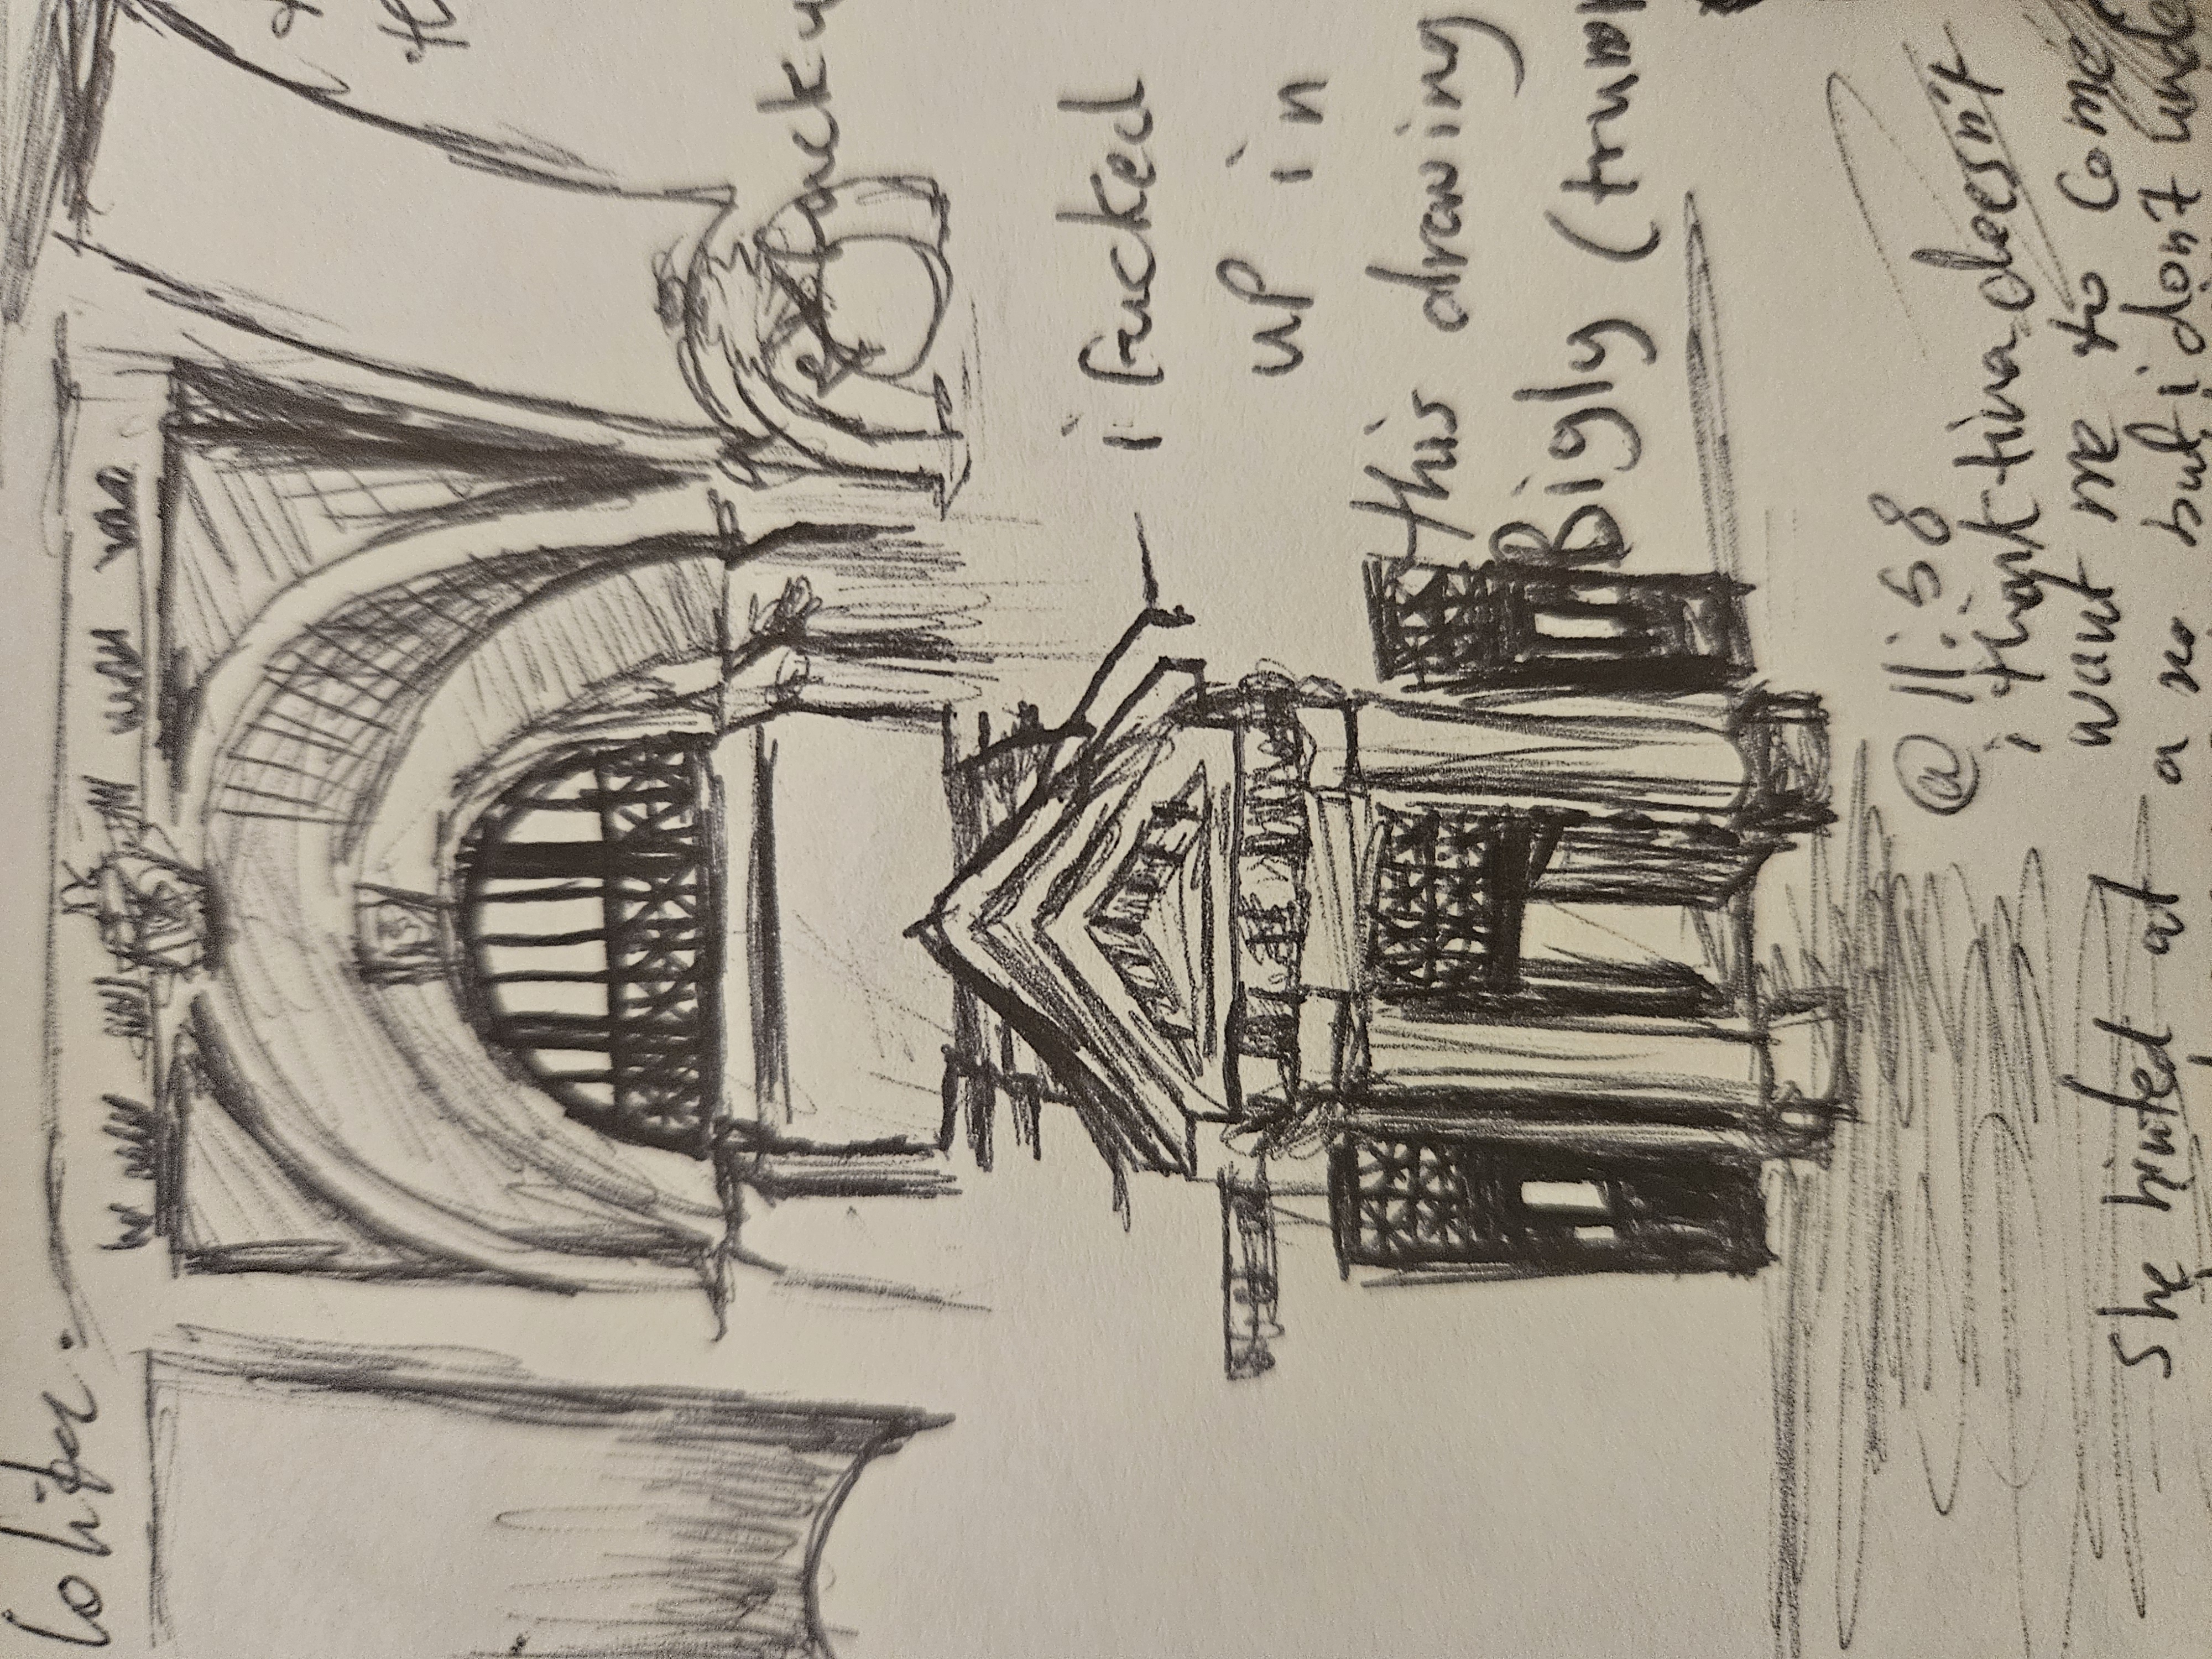 i fucked
up in
this drawing
Bigly (trum
@ 11:58
i think tina doesn't
want me to come
She hinted at a no but i don't unde